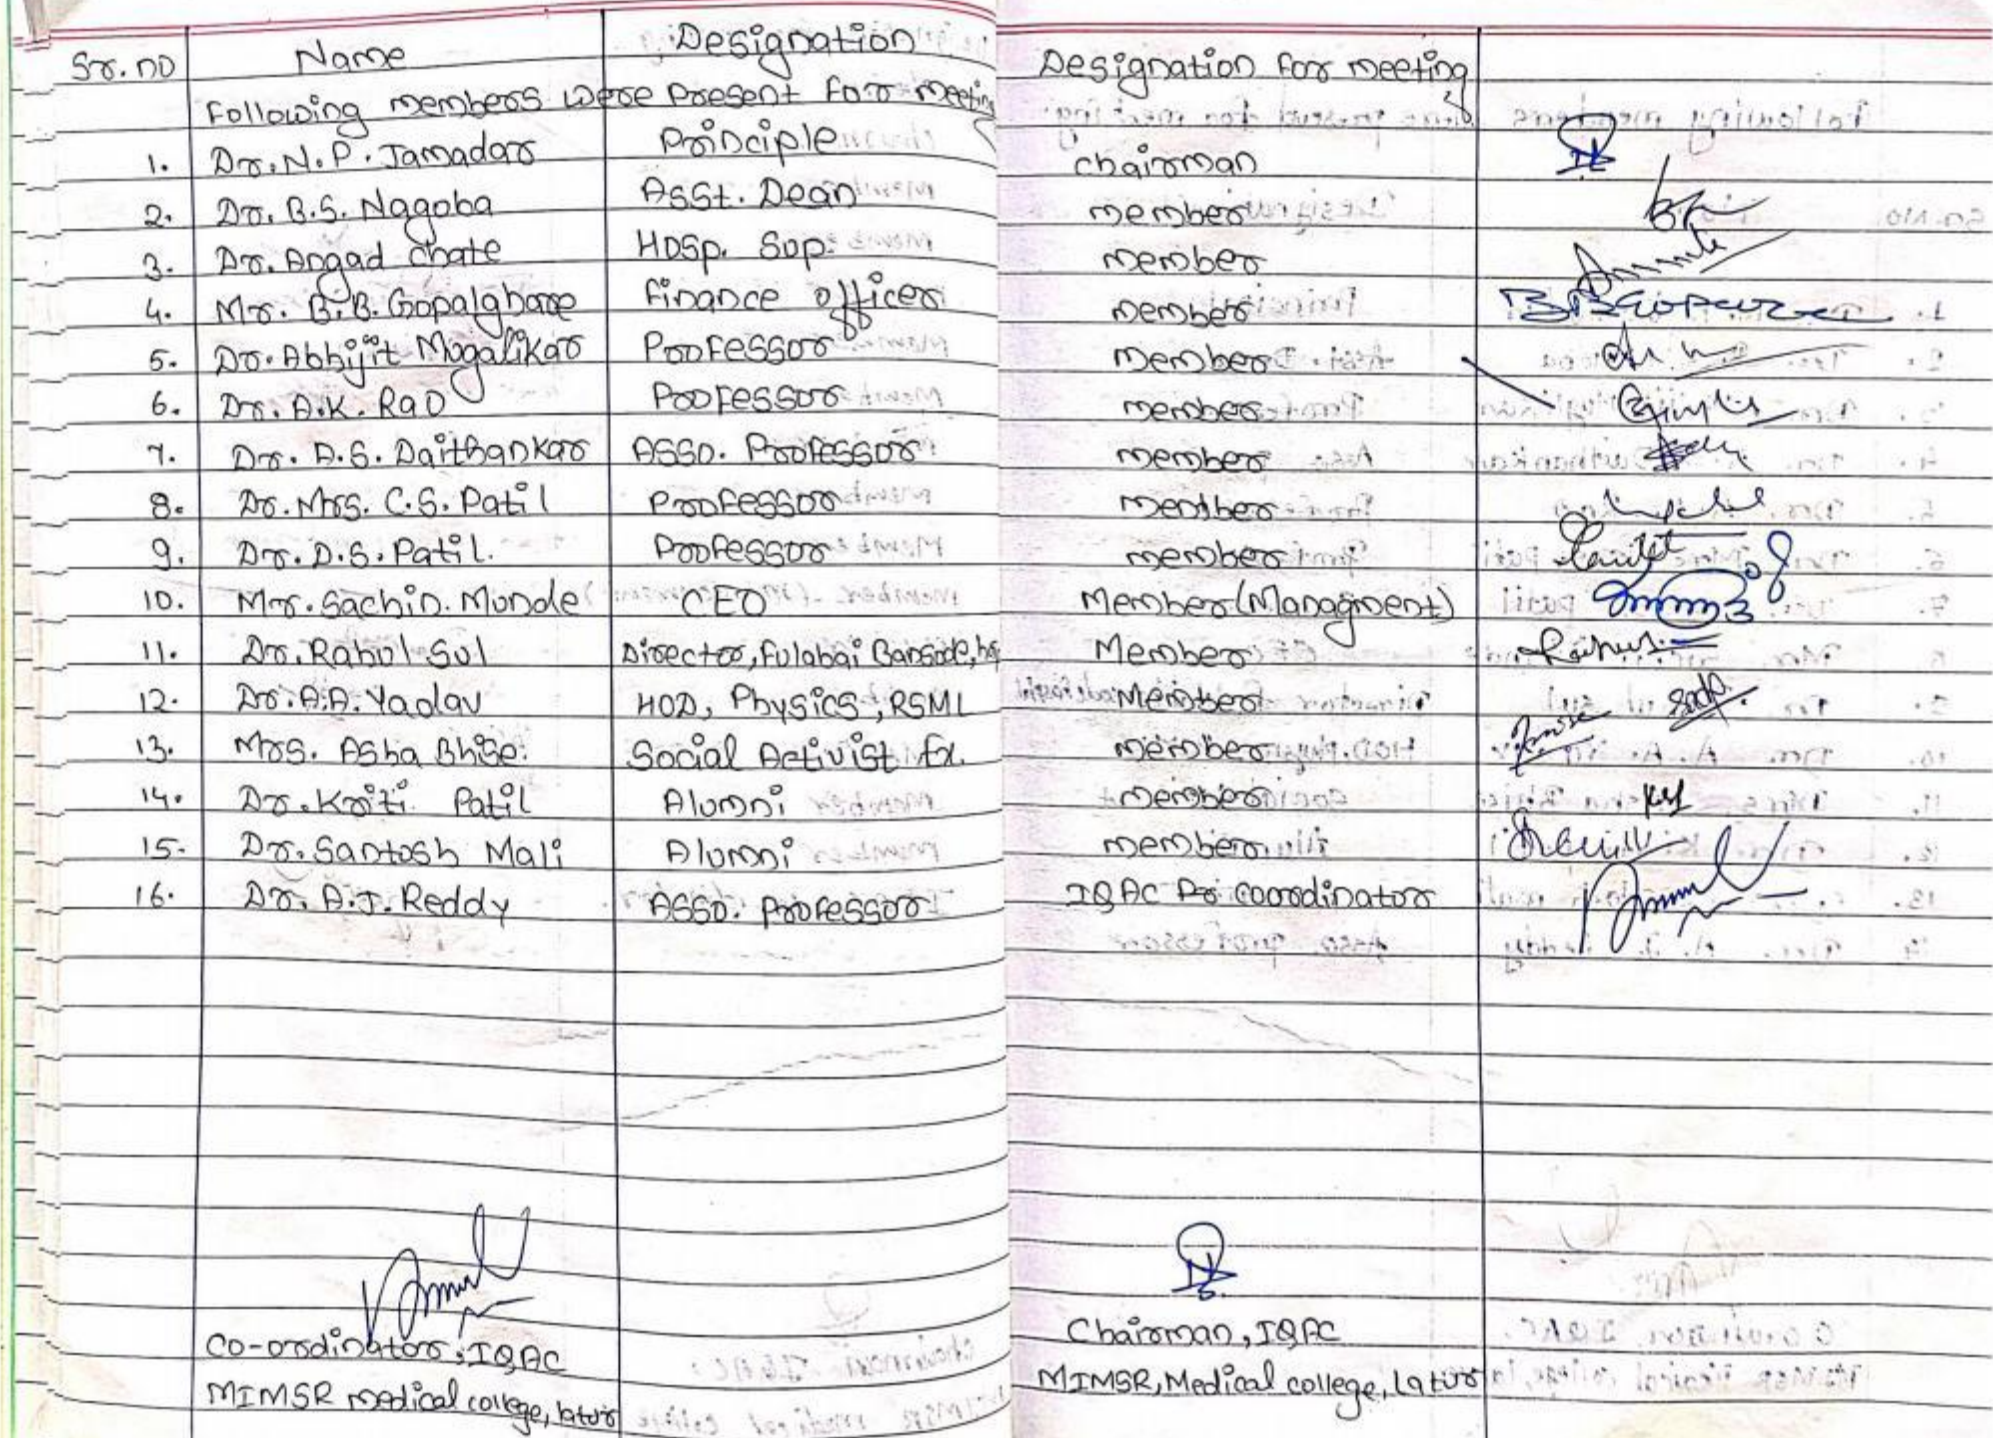 Sr.no Name Designation Designation for meeting
Following members were present for meeting
1. Dr. N. P. Jamadar Principle chairman
2. Dr. B.S. Nagoba Asst. Dean member
3. Dr. Angad chate Hosp. Sup. member
4. Mr. B.B. Gopalghare finance officer member
5. Dr. Abhijit Mogalikar Professor member
6. Dr. A.K. Rao Professor member
7. Dr. D.S. Daithankar Asso. Professor member
8. Dr. Mrs. C.S. Patil Professor member
9. Dr. D.S. Patil. Professor member
10. Mr. Sachin. Munde CEO Member (Managment)
11. Dr. Rahul Sul Director, Fulabai Bansode, Member
12. Dr. A.A. Yadav HOD, Physics, RSML Member
13. Mrs. Asha Bhise. Social Activist member
14. Dr. Kriti Patil Alumni member
15. Dr. Santosh Mali Alumni member
16. Dr. A.J. Reddy Asso. professor IQAC Coordinator
Co-ordinator, IQAC Chairman, IQAC
MIMSR medical college, latur MIMSR, Medical college, Latur